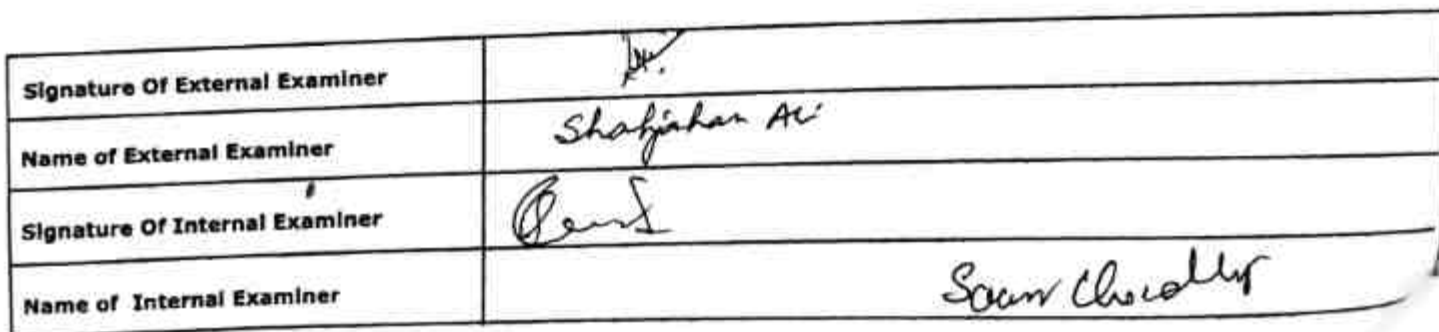 Signature Of External Examiner
Name of External Examiner Shahjahan Ali
Signature Of Internal Examiner
Name of Internal Examiner